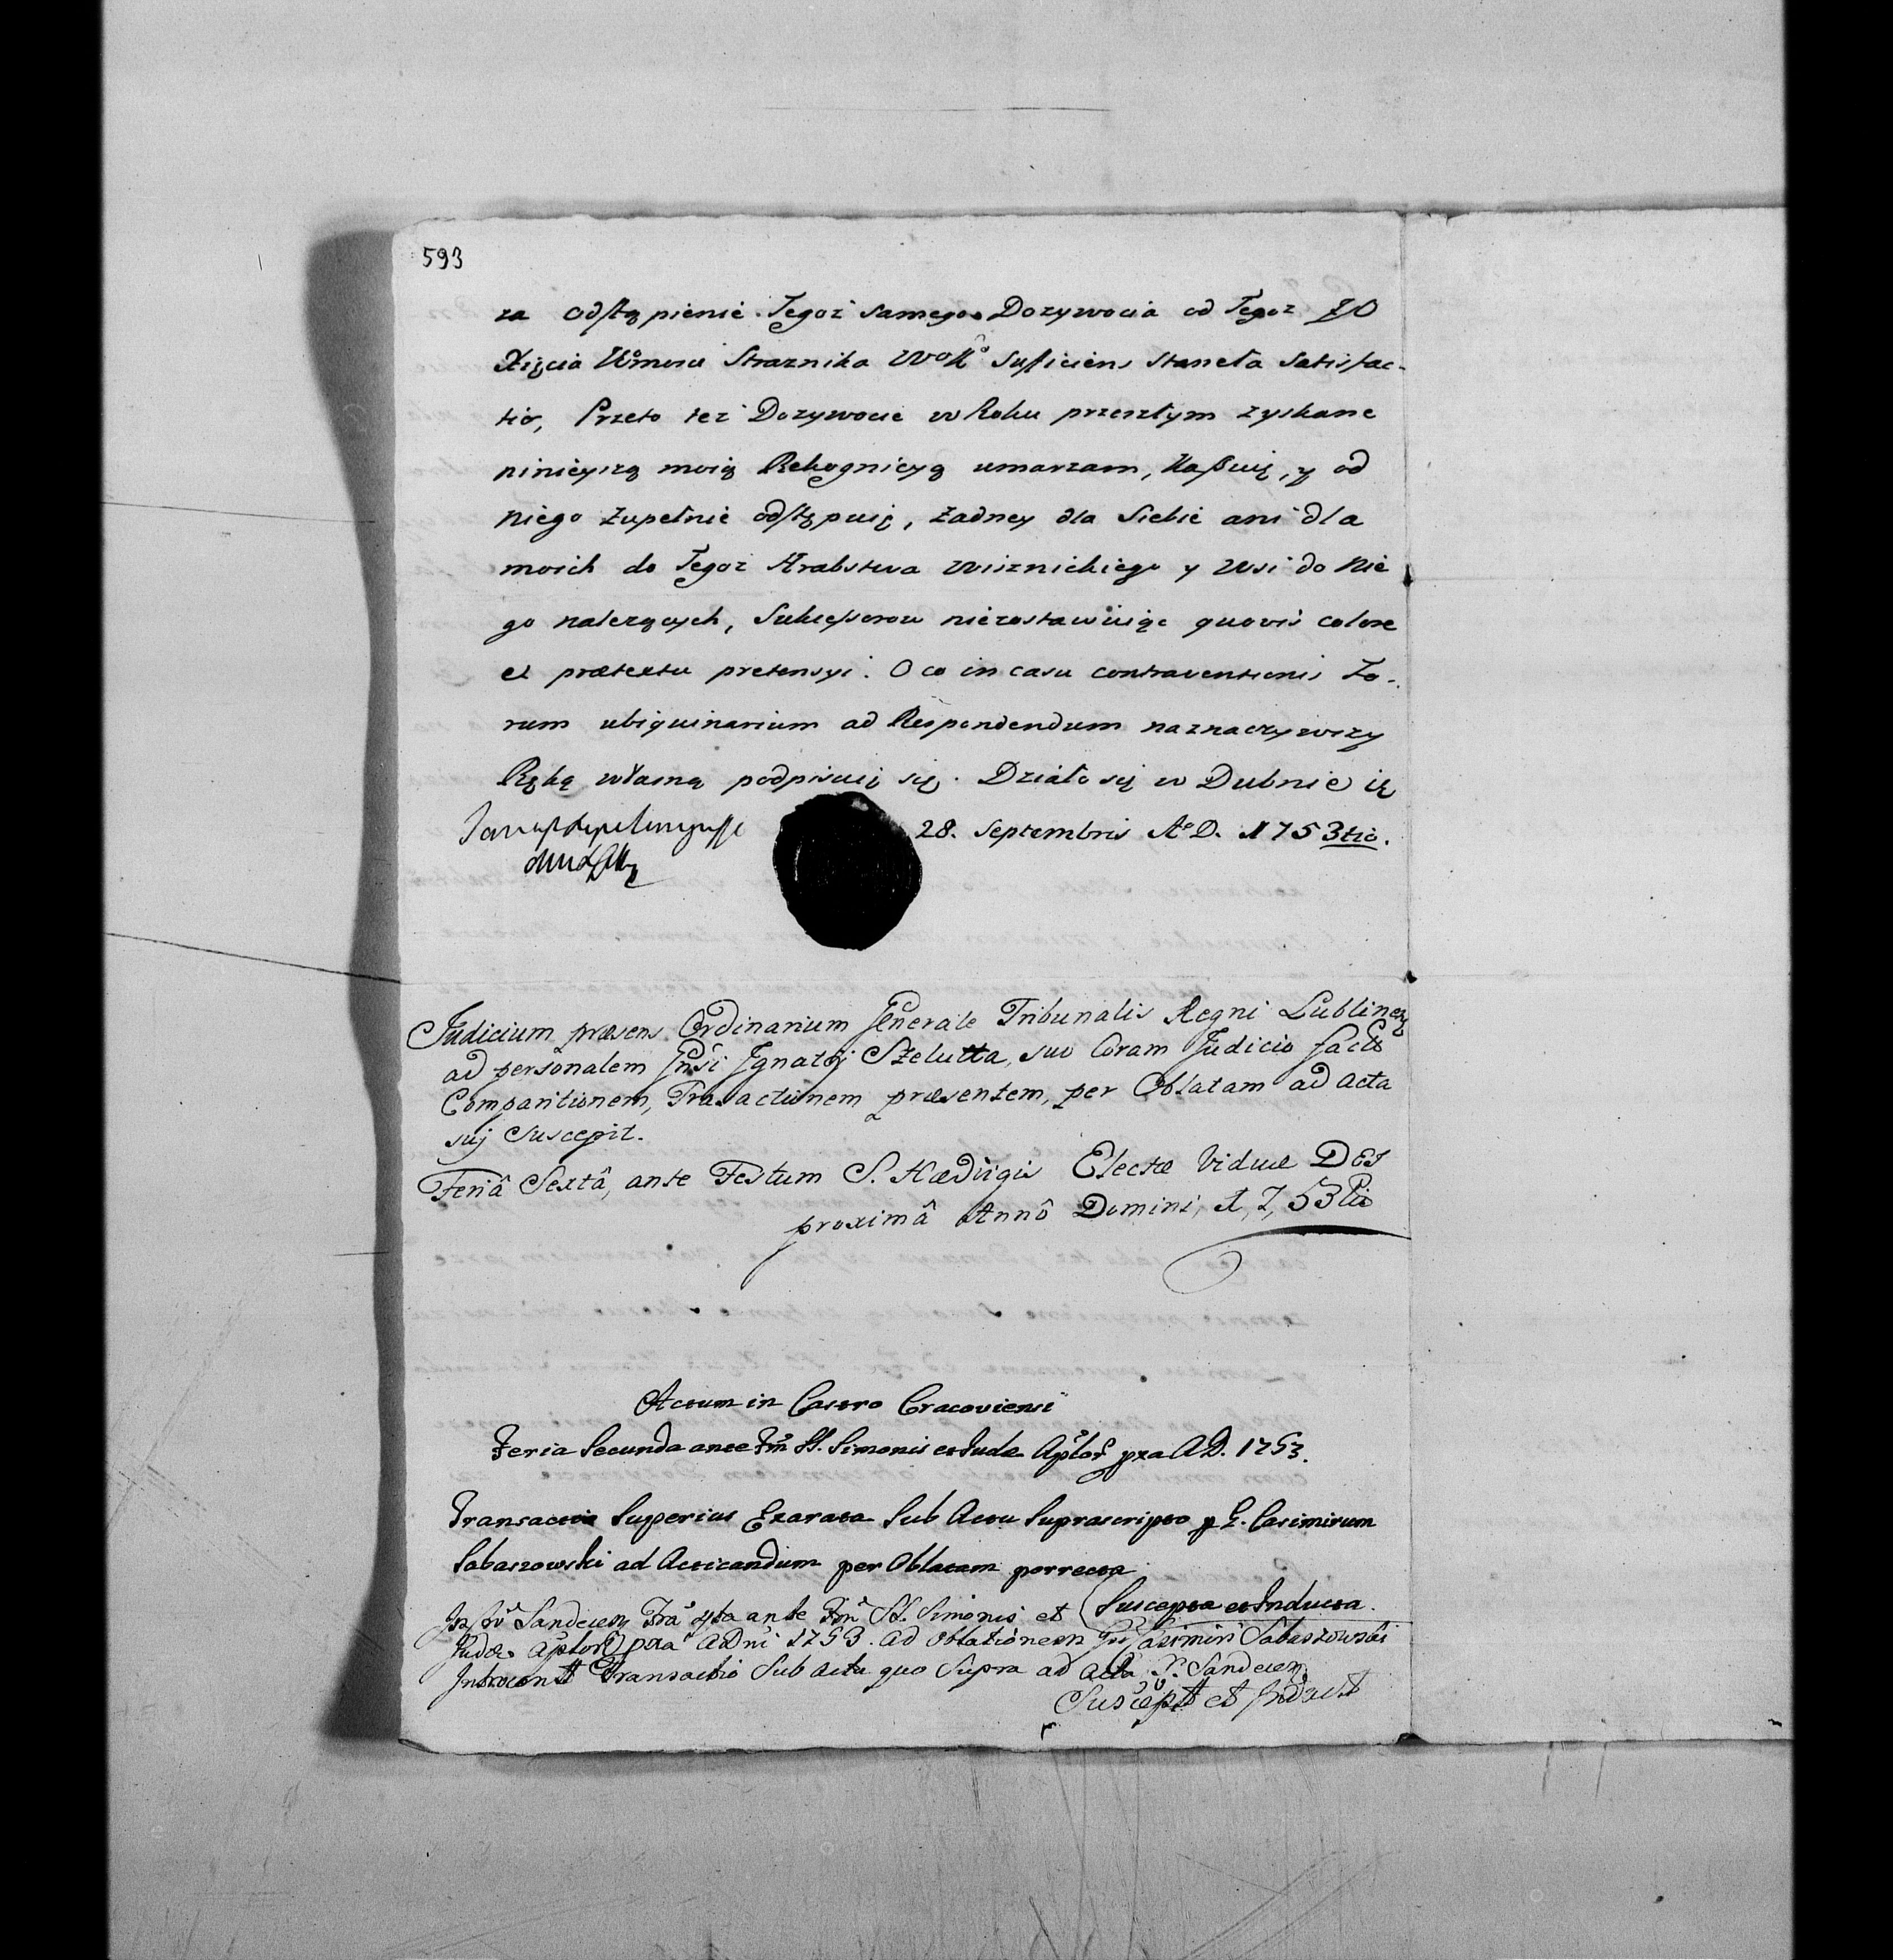 593
za odstąpienie Tegoż samego Dozywocia od Tegoż JO
Xiązcia Jmci Straznika WoKo suficiens staneła satisfac-
tio, Przeto też Dozywocie w Roku przeszłym zyskane
ninieyszą moią Rekognicyą umarzam, Kassuię, y od
niego zupełnie odstępuię, żadney dla siebie ani dla
moich do Tegoż Hrabstwa Wisznickiego y Wsi do Nie
go należących, Sukcessorow niezostawuiąc quovis colore
et prætextu pretensyi. O co in casu contraventionis Fo-
rum ubiquinarium ad Respondendum naznaczywszy
Ręką własną podpisuię się. Działo się w Dubnie
28. Septembris Ao D. 1753tio.
Judicium præsens Ordinarium Generale Tribunalis Regni Lublinen
ad personalem Gnsi Ignatij Szelutta, suo Coram Judicio facto
Comparitionem, Transactionem præsentem, per Oblatam ad acta
suj suscepit.
Feriâ Sextâ, ante Festum S. Hædvigis Electæ Viduæ DEI
proximâ Annô Domini, 1,7,53tio
Actum in Castro Cracoviensi
Feria Secunda ante Fm SS. Simonis et Judæ Aplor pxa AD. 1753.
Transactio Superius Exarata Sub Actu Suprascripto p G. Casimirum
Sabaszowski ad Acticandum per Oblatam porrecta
Suscepta et Inducta.
Sandecen Fra 4ta ante Fm SS. Simonis et
Judæ Aplor pxa ADni 1753. ad oblationem Gsi Casimiri Sabaszowski
Introcont Transactio Sub actu quo Supra ad acta Sandecen
Suscept et Induct